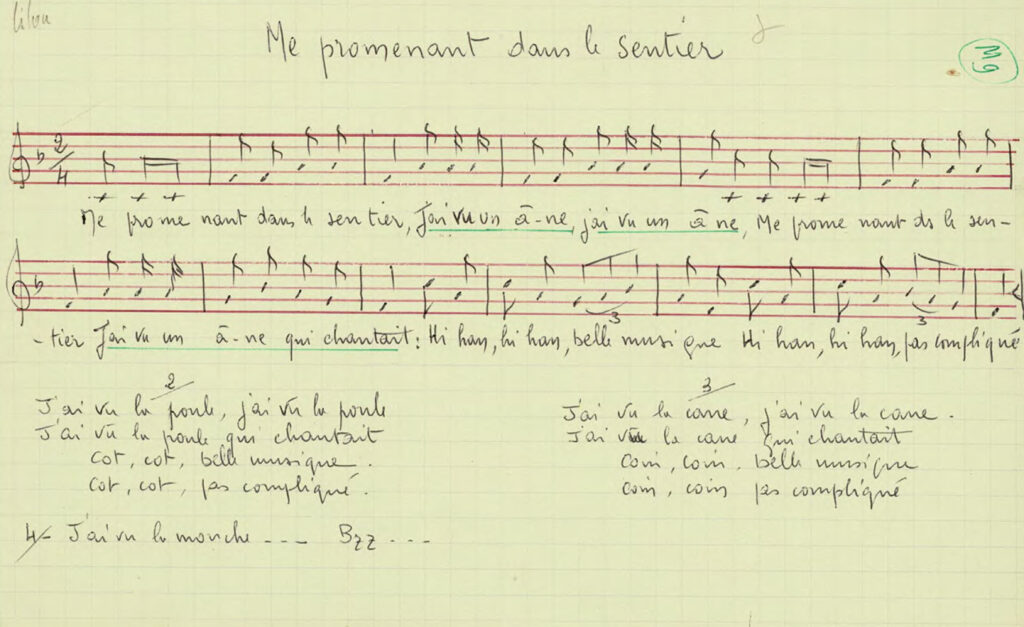 Lilou
Me promenant dans le sentier
M9
2/4
Me prome nant dans le sen tier, J'ai vu un â-ne, j'ai vu un â ne, Me prome nant ds le sen-
3 3
-tier J'ai vu un â-ne qui chantait : Hi han, hi han, belle musi que Hi han, hi han, pas compliqué
2
J'ai vu la poule, j'ai vu la poule
J'ai vu la poule qui chantait
Cot, cot, belle musique.
Cot, cot, pas compliqué.
3
J'ai vu la cane, j'ai vu la cane.
J'ai vu la cane qui chantait
Coin, coin, belle musique
Coin, coin pas compliqué
4- J'ai vu la mouche --- Bzz ...